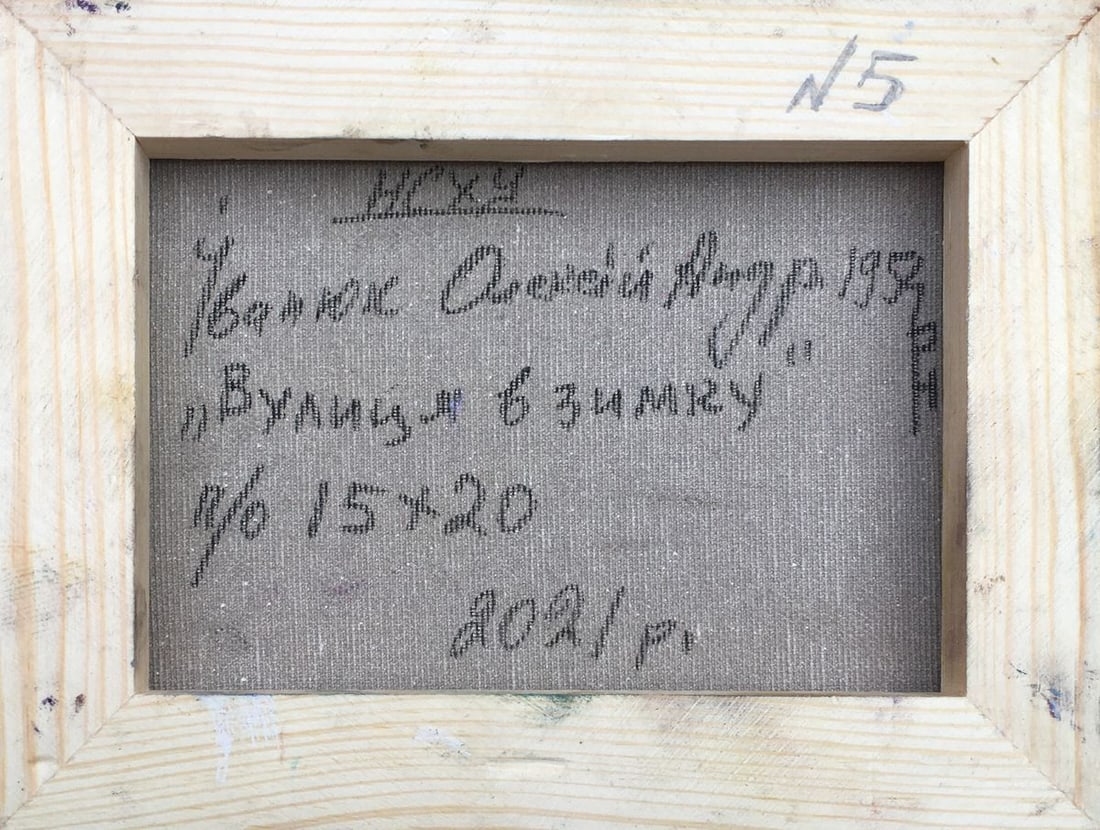 N5
НСХУ
Іванюк Олексій Андр 195
„Вулиця в зимку"
п/о 15х20
2021 р.